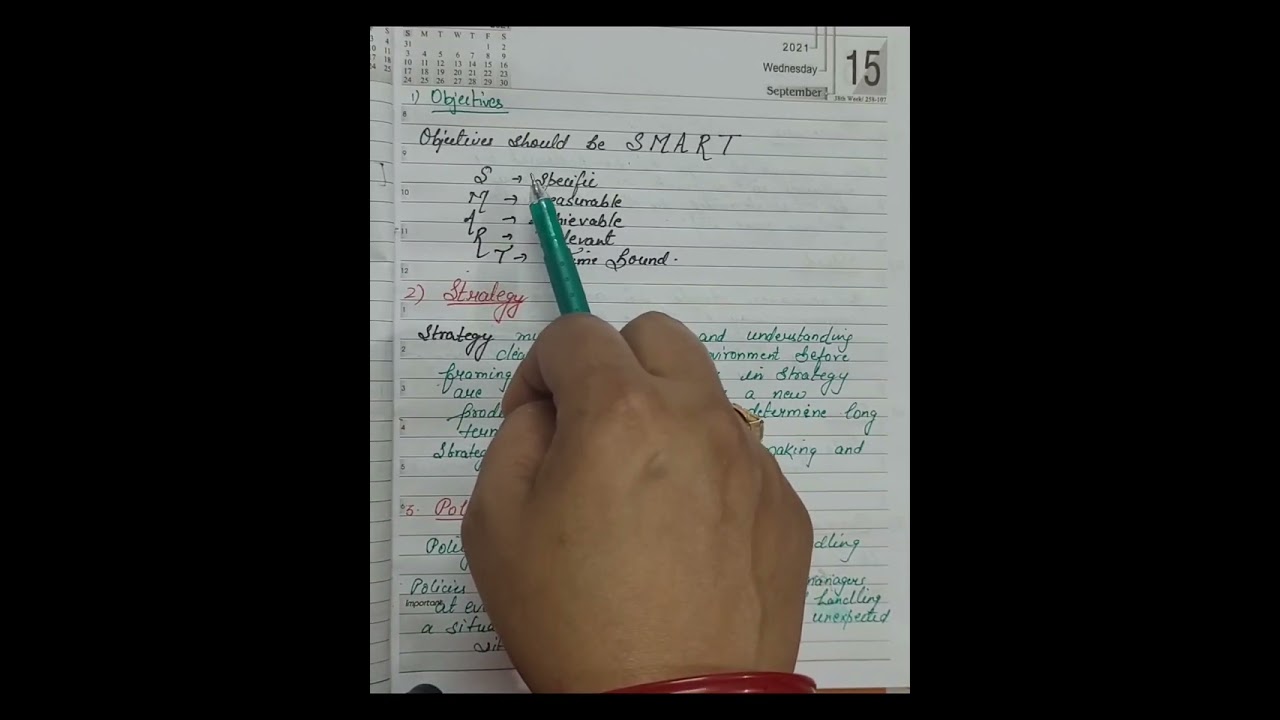 S M T W T F S
31 1 2
3 4 5 6 7 8 9
10 11 12 13 14 15 16
17 18 19 20 21 22 23
24 25 26 27 28 29 30
2021
Wednesday
September
15
38th Week/ 258-107
1) Objectives
8
Objectives should be SMART
9
S → Specific
10
M → easurable
A → hievable
11
R → levant
T → me Bound.
12
2) Strategy
1
Strategy and understanding
2
clea vironment before
framing in strategy
3
are a new
prod determine long
4
term
Strateg making and
5
Pol
Poli dling
Policies managers
Important at ev handling
a situa unexpected
sit